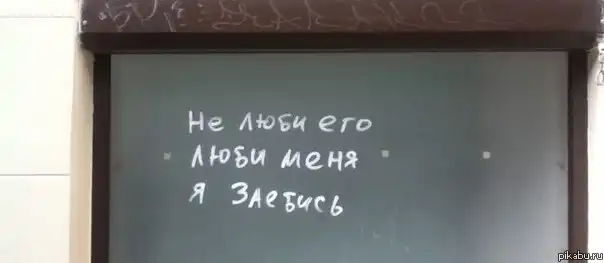 Не люби его
люби меня
я заебись
pikabu.ru